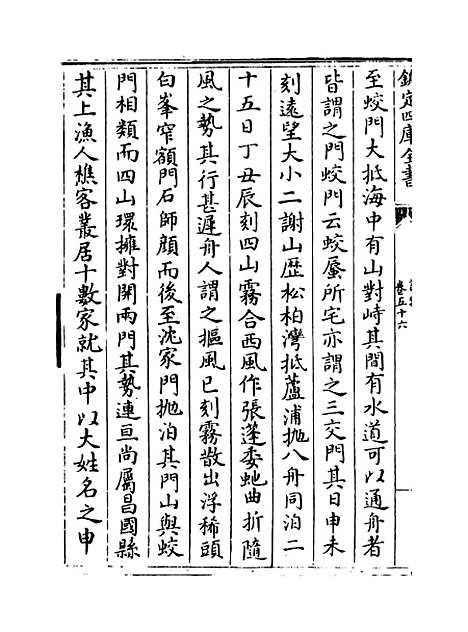 欽定四庫全書
卷五十六
至蛟門大抵海中有山對峙其間有水道可以通舟者
皆謂之門蛟門云蛟蜃所宅亦謂之三交門其日申未
刻遠望大小二謝山歴松柏灣抵蘆浦抛八舟同泊二
十五日丁丑辰刻四山霧合西風作張蓬委虵曲折隨
風之勢其行甚遲舟人謂之摳風巳刻霧散出浮稀頭
白峯窄額門石師顔而後至沈家門抛泊其門山與蛟
門相類而四山環擁對開兩門其勢連亘尚屬昌國縣
其上漁人樵客叢居十數家就其中以大姓名之申